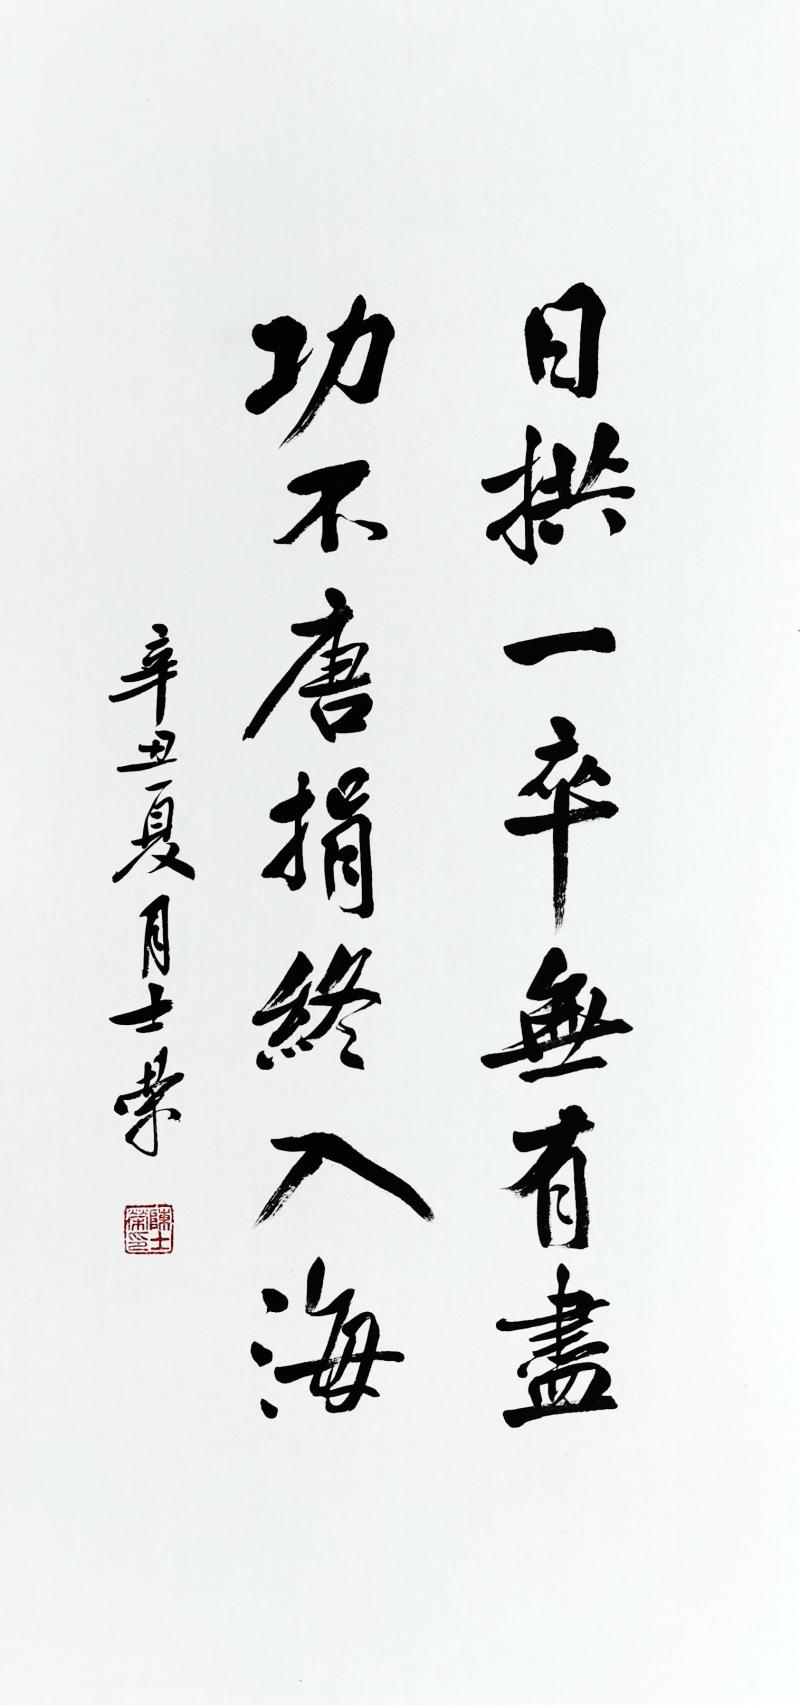 日拱一卒無有盡
功不唐捐終入海
辛丑夏月士榮
陳士
榮印